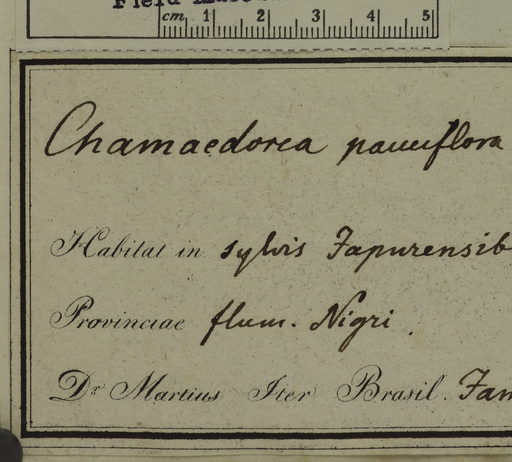 Field Museum
cm 1 2 3 4 5
Chamaedorea pauciflora
Habitat in sylvis Japurensib
Provinciae flum. Nigri.
Dr Martius Iter Brasil. Jan